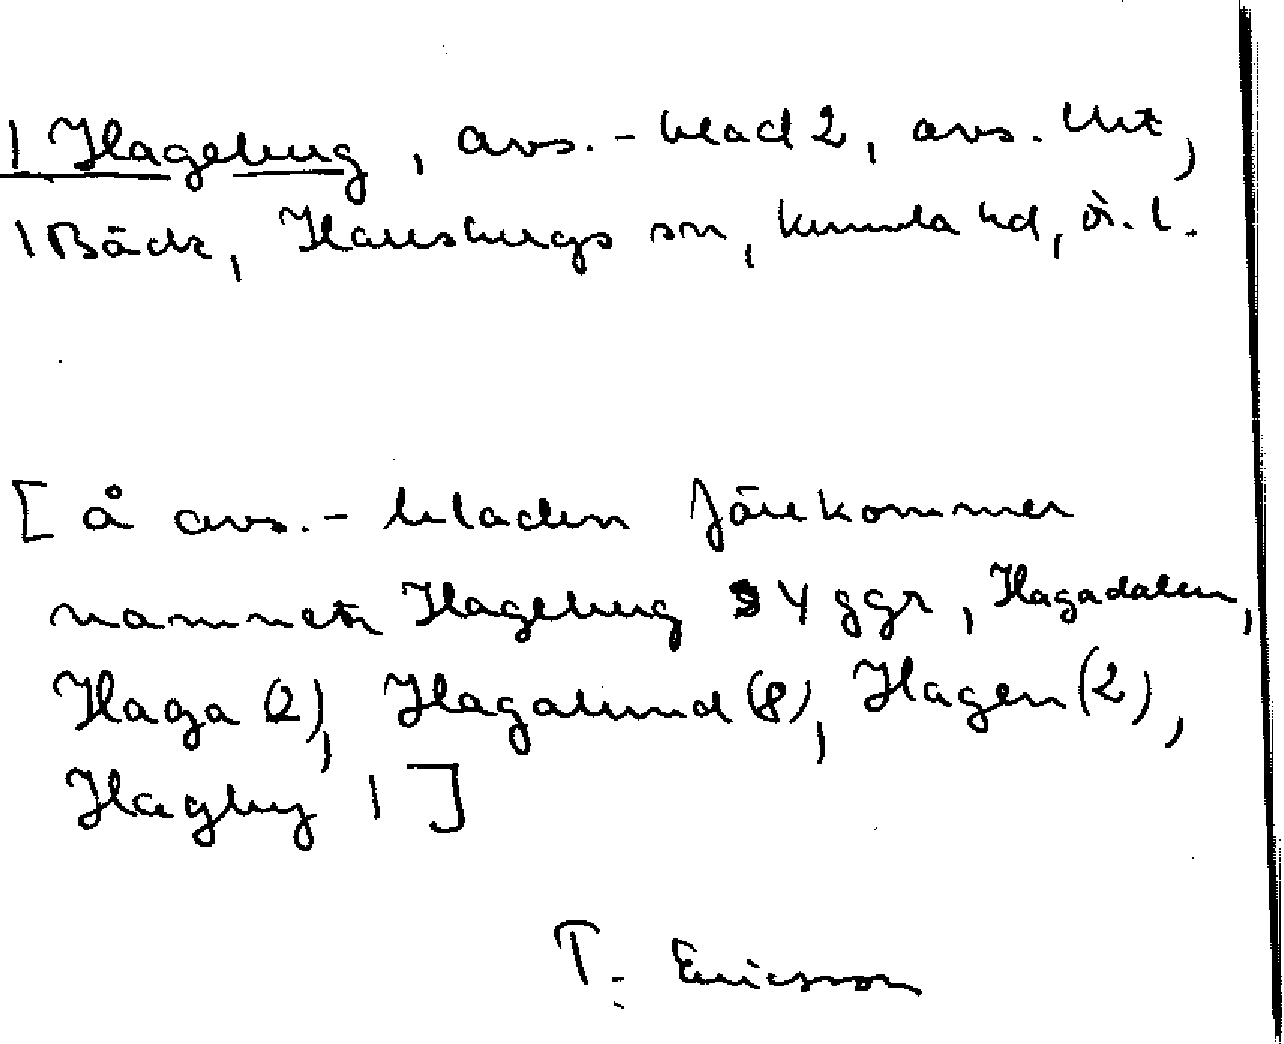 1 Hageberg, avs.-blad 2, avs. till,
1 Bäck, Hallsbergs sn, Kumla hd, ö. l.
[ å avs.-bladen förekommer
namnen Hageberg 4 ggr, Hagadalen,
Haga (2), Hagalund (8), Hagen (2),
Hagby 1 ]
T. Ericsson